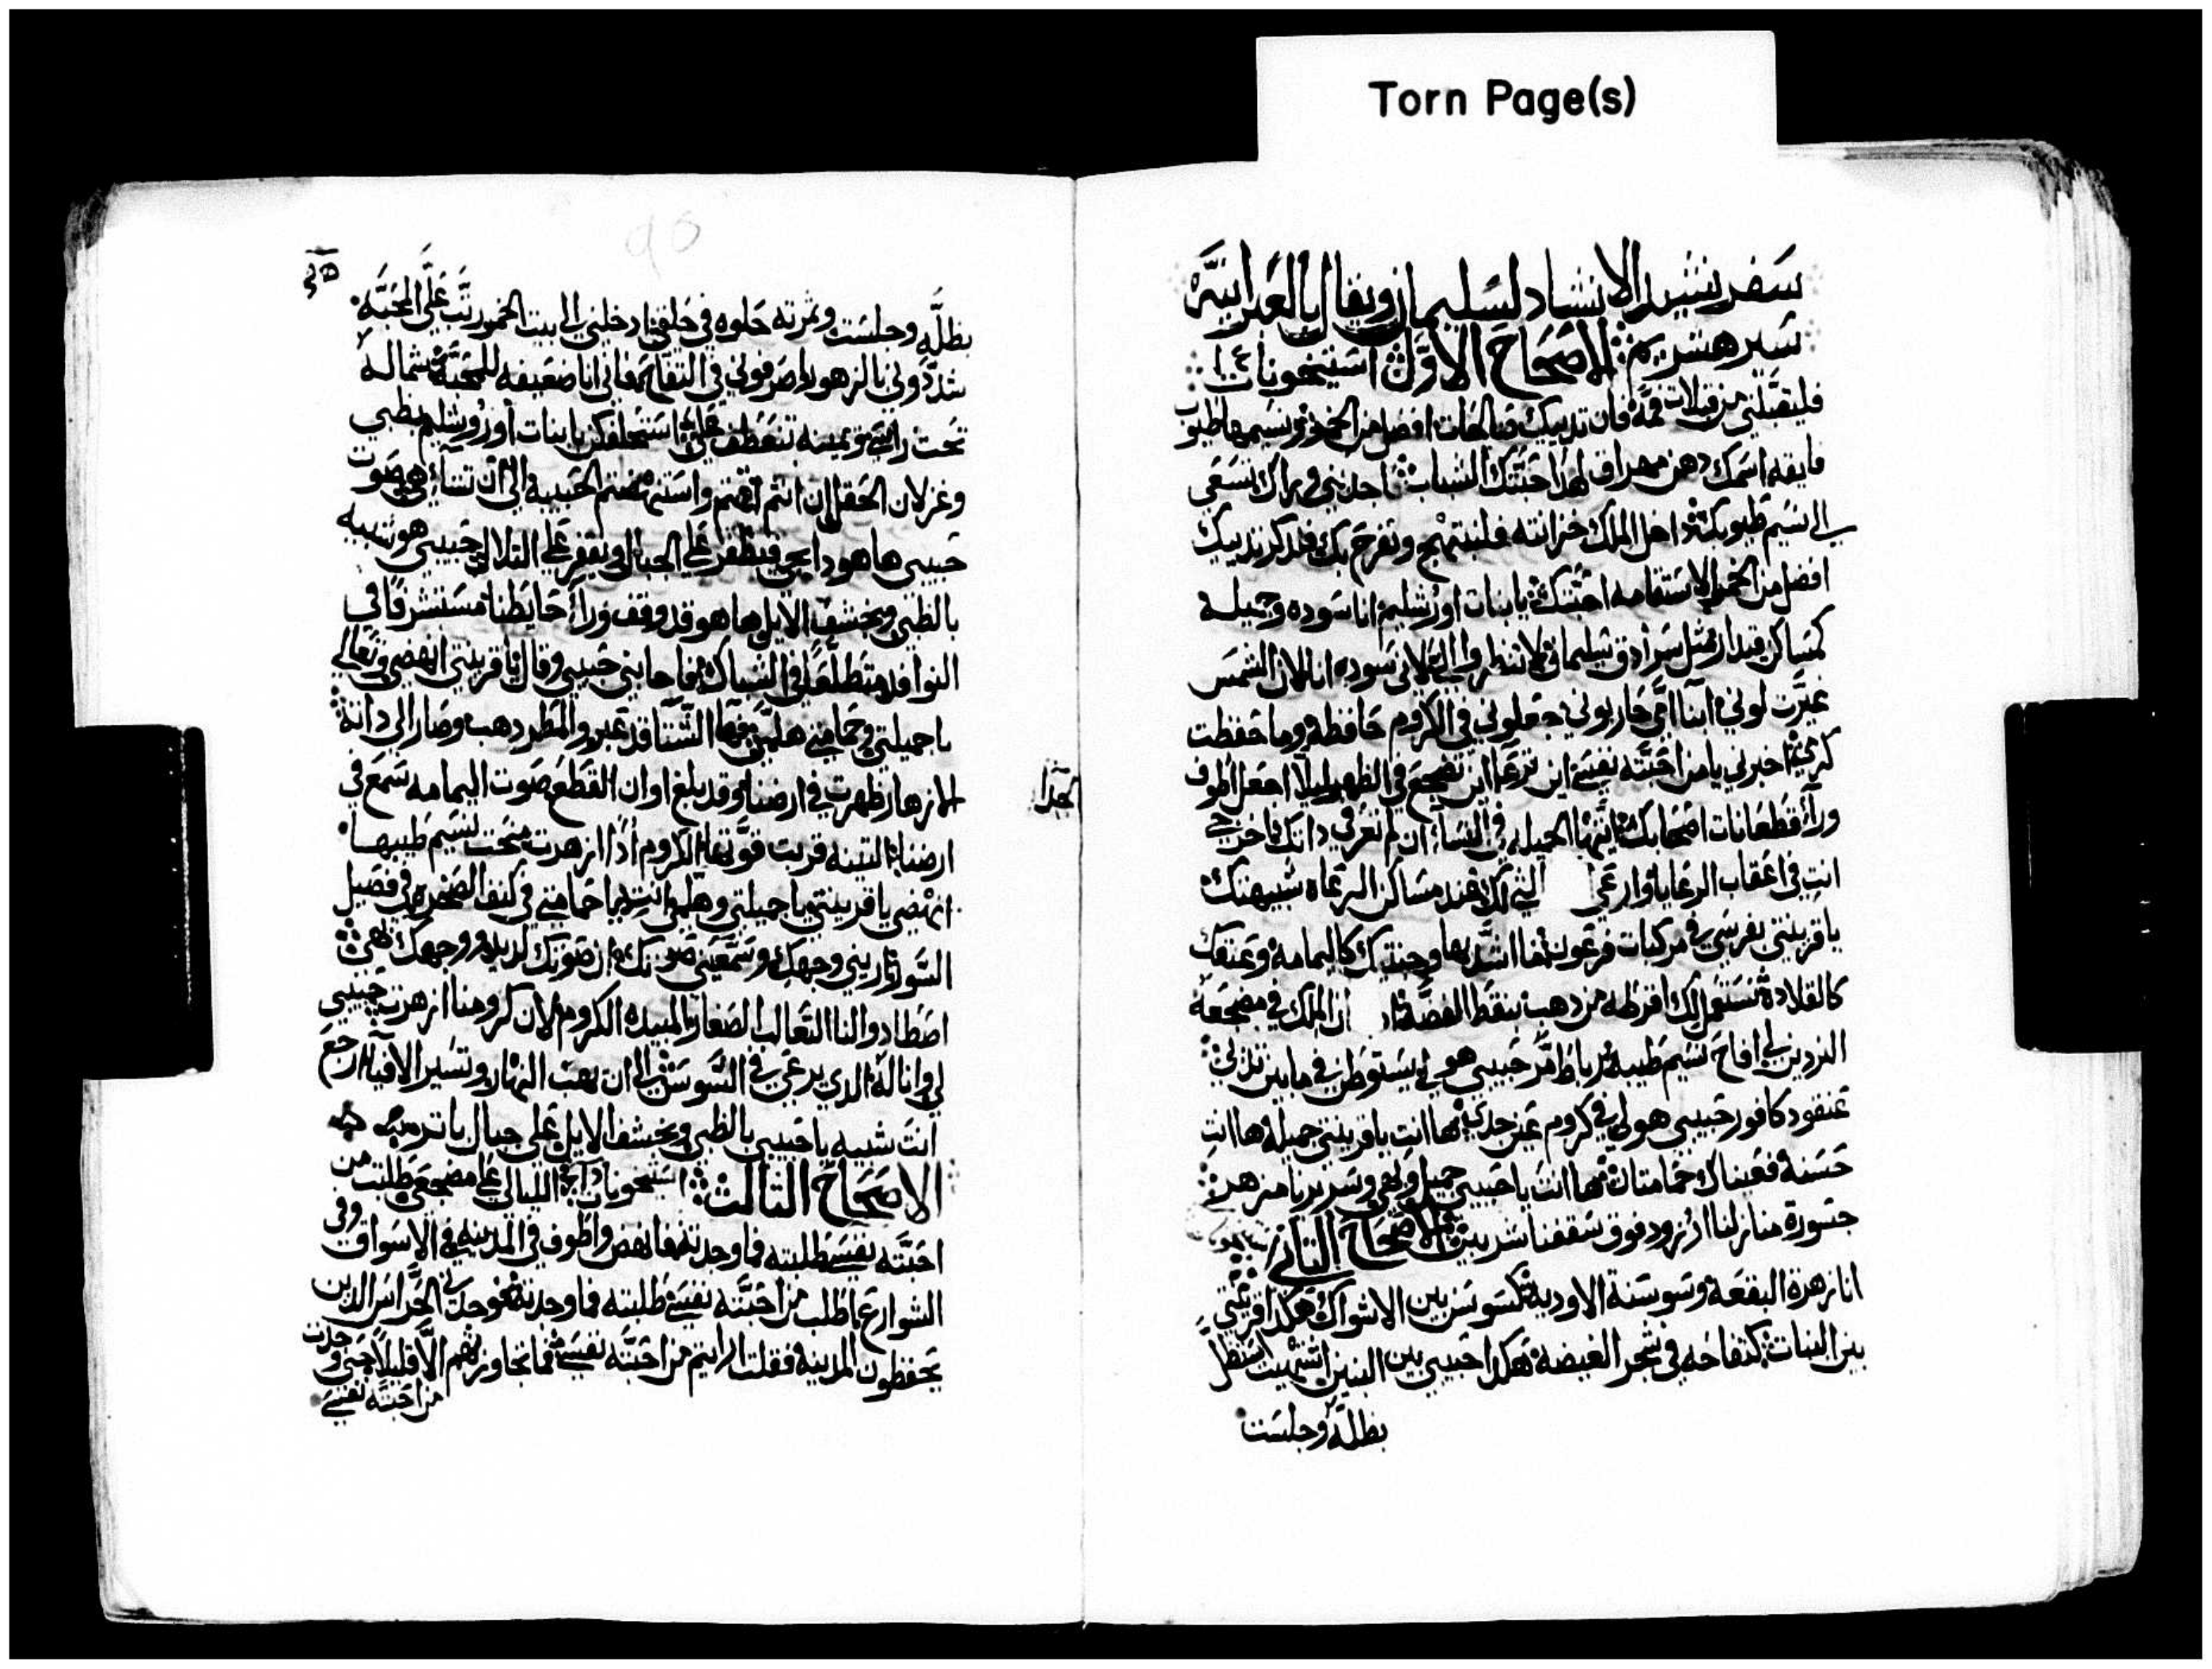 Torn Page(s)
سفر نشيد الانشاد لسليمان ويقال بالعبرانيه
سير هسريم الاصحاح الاول استيخونات
فليقبلني من قبلات فمه فان ثدييك صالحات افضل من الخمر ونسيمها طيوب
فايقه اسمك دهن مهراق لهذا احبتك الشباب اجذبني وراك نسعي
الي نسيم طيوبك داخل الملك خزانته فلنبتهج ونفرح بك فلنذكر ثدييك
افضل من الخمر الاستقامه احبتك يا بنات اورشليم انا سوده وجميله
كمساكن قيدار مثل سرادق سليمان لا تنظروا الي لاني سوده انا لان الشمس
غيرت لوني ابنا امي حاربوني جعلوني في الكروم حافظه وما حفظت
كرمي اخبرني يا من احبته نفسي اين ترعا اين تضجع في الظهر ليلا اجعل اطوف
ورآء قطعانات اصحابك ايتها الجميله في النسآء ان لم تعرفي ذاتك فاخرجي
انت في اعقاب الرعايا وارعي التي لك عند مساكن الرعاه شبيهتك
يا قرينتي بفرسي في مركبات فرعون ما اشد بها وجنتيك كاليمامه وعنقك
كالقلادة نستعمل لك اقرطه من ذهب بنقط الفضه ان الملك في مضجعه
النردين لي افاح نسيم طيبه رباط مر حبيبي هو لي يستوطن في ما بين ثديي
عنقود كافور حبيبي هو لي في كروم عين جدي ها انت يا قرينتي جميله ها انت
حسنة فعيناك حمامتان ها انت يا حبيبي جميل وبهي وسريرنا مزهر
جسورة منازلنا ارز ودفوف سقفنا سربين الاصحاح الثاني
انا زهرة البقعة وسوسنة الاوديه كسوسن بين الاشواك هكذا قرينتي
بين البنات كتفاحه في شجر الغيضه هكذا حبيبي بين البنين اشتهيت استظل
بظله وجلست
بظله وجلست وثمرته حلوه في حلقي ادخلني الي بيت الخمور رتب علي المحبه
شددوني بالزهور اصرفوني في التفاح فاني انا ضعيفه للمحبة شماله
تحت راسي ويمينه تنعطف علي استحلفكن يا بنات اورشليم بظبي
وغزلان الحقل ان انتم انهضتم واستنهضتم الحبيبة الي ان تشآء هي صوت
حبيبي ها هوذا يجي فيظفر علي الجبال ويقفز علي التلال حبيبي هو شبيه
بالظبي وبخشف الايل ها هو قد وقف ورآء حايطنا مستشرفا في
النوافذ متطلعا في الشباك فاجابني حبيبي وقال يا قرينتي انهضي وتعالي
يا جميلتي وحمامتي هلمي فها الشتا قد عبر والمطر ذهب وصار الي ذاته
الازهار ظهرت في ارضنا وقد بلغ اوان القطع صوت اليمامه سمع في
ارضنا التينه قربت فوتها الكروم اذا ازهرت منحت نسيم طيبها
انهضي يا قرينتي يا جميلتي وهلمي انت يا حمامتي في كنف الصخره في فصيل
السور اريني وجهك وسمعيني صوتك ان صوتك لذيذ ووجهك بهي
اصطادوا لنا الثعالب الصغار المبيده الكروم لان كرومنا ازهرت حبيبي
لي وانا له الذي يرعي في السوسن الي ان يهب النهار وتسير الافيآء ارجع
انت شبيه يا حبيبي بالظبي وبخشف الايل علي جبال
الاصحاح الثالث استيخونات في الليالي علي مضجعي طلبت من
احبته نفسي طلبته فما وجدته فانهض واطوف في المدينه في الاسواق وفي
الشوارع اطلب من احبته نفسي طلبته فما وجدته وجدني الحراس الذين
يحفظون المدينة فقلت ارايتم من احبته نفسي فما تجاوزتهم الا قليلا حتي وجدت
من احبته نفسي